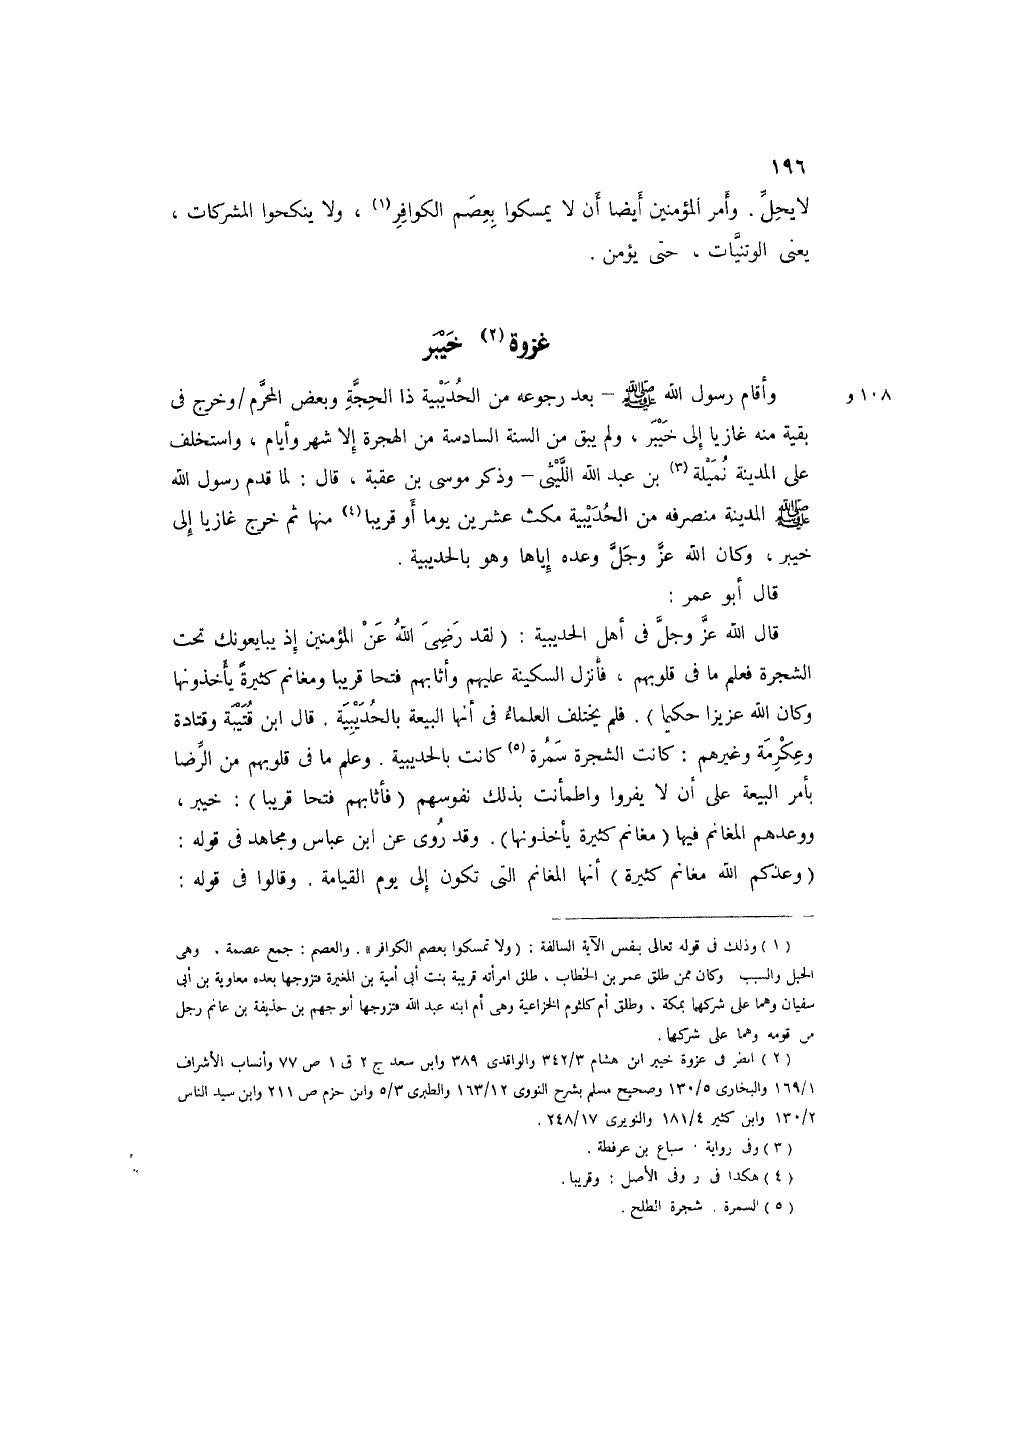 ١٩٦
لايحِلِّ . وأَمر المؤمنين أَيضا أَن لا يمسكوا بِعِصَم الكوافِرِ(١) ، ولا ينكحوا المشركات ،
يعنى الوثنيَّات ، حتى يؤمن .
غزوة(٢) خَيْبَر
١٠٨ و وأقام رسول الله ﷺ – بعد رجوعه من الحُدَيْبية ذا الحِجَّةِ وبعض المحرَّم / وخرج فى
بقية منه غازيا إلى خَيْبَر ، ولم يبق من السنة السادسة من الهجرة إلا شهر وأيام ، واستخلف
على المدينة نُمَيْلة(٣) بن عبد الله اللَّيْثى – وذكر موسى بن عقبة ، قال : لما قدم رسول الله
ﷺ المدينة منصرفه من الحُدَيْبية مكث عشرين يوما أَو قريبا(٤) منها ثم خرج غازيا إلى
خيبر ، وكان الله عزَّ وجَلَّ وعده إِياها وهو بالحديبية .
قال أبو عمر :
قال الله عزَّ وجلَّ فى أهل الحديبية : ( لقد رَضِىَ اللهُ عَنْ المؤمنين إذ يبايعونك تحت
الشجرة فعلم ما فى قلوبهم ، فأنزل السكينة عليهم وأثابهم فتحا قريبا ومغانم كثيرةً يأخذونها
وكان الله عزيزا حكيما ) . فلم يختلف العلماءُ فى أنها البيعة بالحُدَيْبِيَة . قال ابن قُتَيْبَة وقتادة
وعِكْرِمَة وغيرهم : كانت الشجرة سَمُرة(٥) كانت بالحديبية . وعلم ما فى قلوبهم من الرِّضا
بأمر البيعة على أن لا يفروا واطمأنت بذلك نفوسهم ( فأثابهم فتحا قريبا ) : خيبر ،
ووعدهم المغانم فيها ( مغانم كثيرة يأخذونها ) . وقد رُوى عن ابن عباس ومجاهد فى قوله :
( وعدكم الله مغانم كثيرة ) أنها المغانم التى تكون إلى يوم القيامة . وقالوا فى قوله :
( ١ ) وذلك فى قوله تعالى بنفس الآية السالفة : ( ولا تمسكوا بعصم الكوافر » . والعصم : جمع عصمة . وهى
الحبل والسبب وكان ممن طلق عمر بن الخطاب ، طلق امرأته قريبة بنت أبى أمية بن المغيرة فتزوجها بعده معاوية بن أبى
سفيان وهما على شركها بمكة ، وطلق أم كلثوم الخزاعية وهى أم ابنه عبد الله فتزوجها أبو جهم بن حذيفة بن غانم رجل
من قومه وهما على شركها .
( ٢ ) انظر فى غزوة خيبر ابن هشام ٣٤٢/٣ والواقدى ٣٨٩ وابن سعد ج ٢ ق ١ ص ٧٧ وأنساب الأشراف
١٦٩/١ والبخارى ١٣٠/٥ وصحيح مسلم بشرح النووى ١٦٣/١٢ والطبرى ٥/٣ وابن حزم ص ٢١١ وابن سيد الناس
١٣٠/٢ وابن كثير ١٨١/٤ والنويرى ٢٤٨/١٧ .
( ٣ ) وفى رواية : سباع بن عرفطة .
( ٤ ) هكذا فى ر وفى الأصل : وقريبا .
( ٥ ) السمرة . شجرة الطلح .